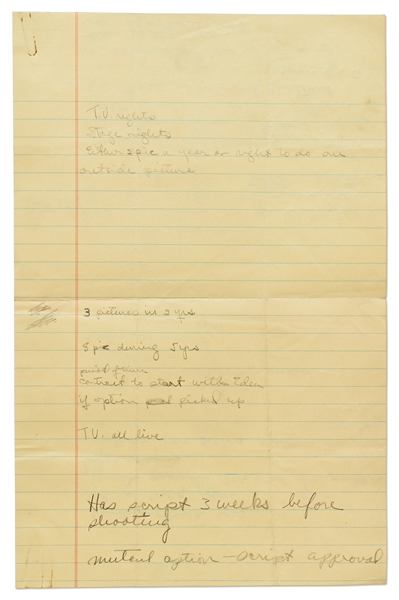 T.V rights
Stage rights
Either 2 pic a year or right to do an
outside picture
3 pictures in 2 yrs
8 pic during 5 yrs
contract to start with
if option picked up
T.V. all live
Has script 3 weeks before
shooting
mutual option - script approval